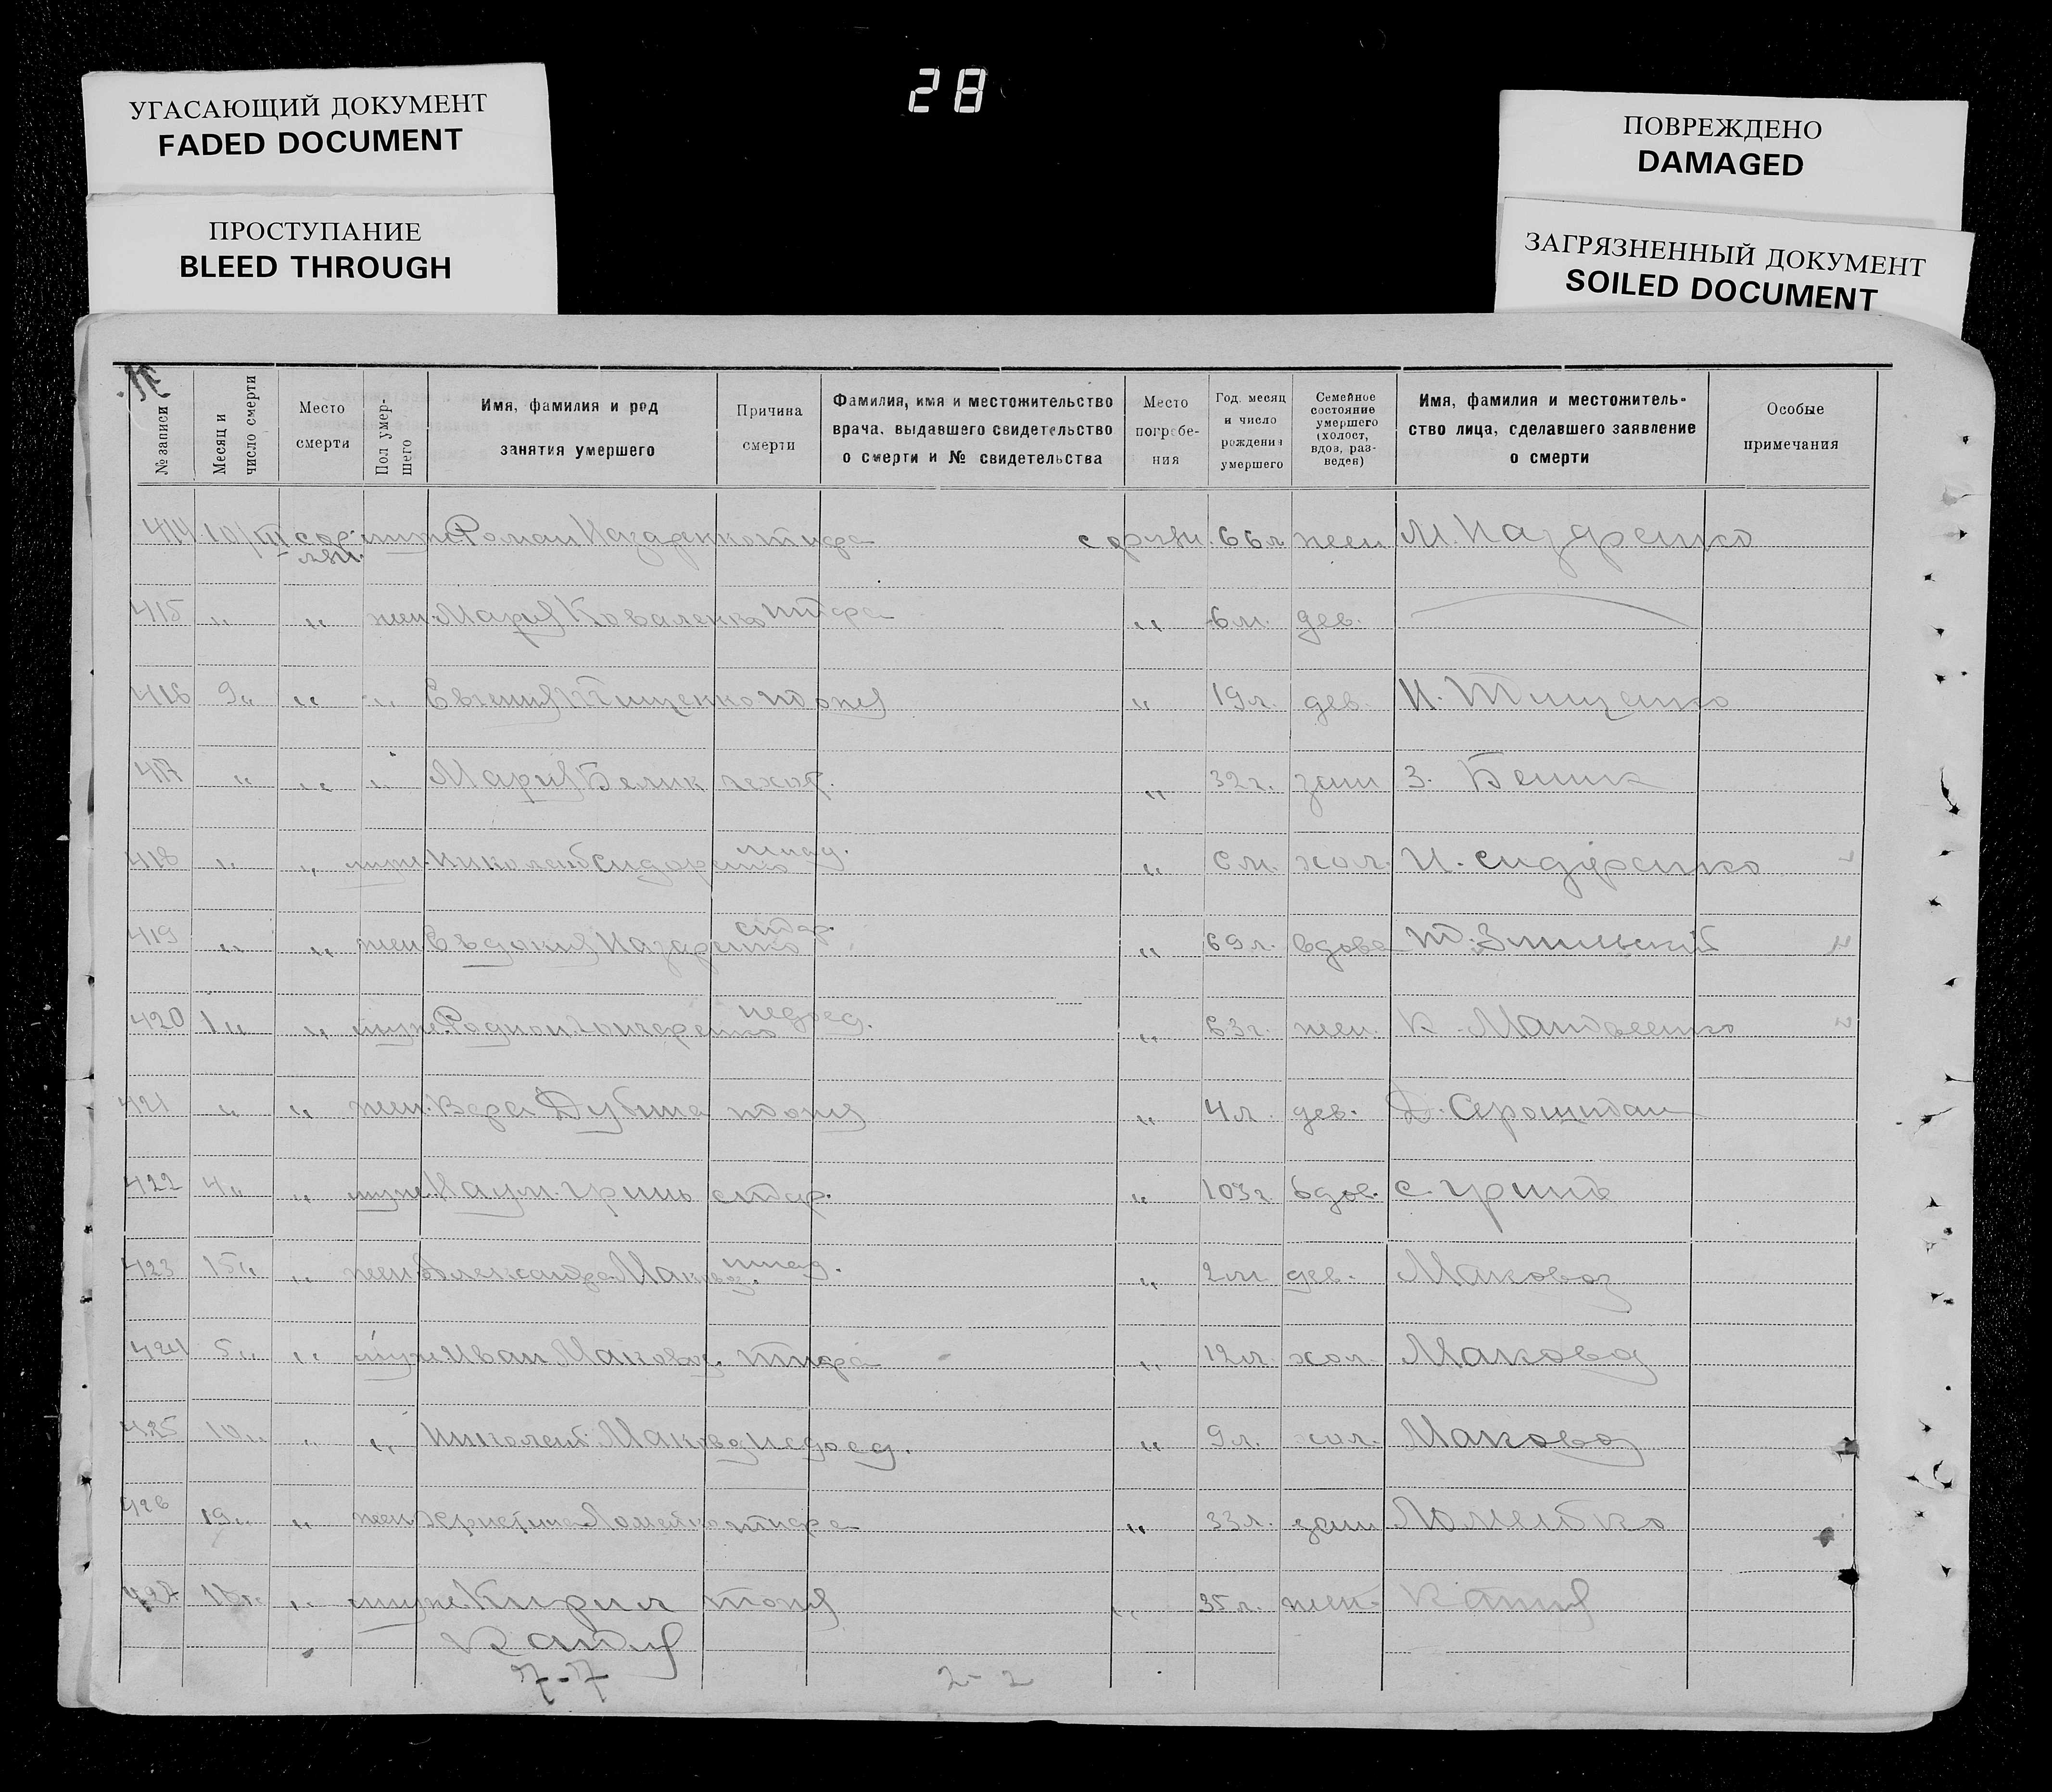 28
УГАСАЮЩИЙ ДОКУМЕНТ
FADED DOCUMENT
ПРОСТУПАНИЕ
BLEED THROUGH
ПОВРЕЖДЕНО
DAMAGED
ЗАГРЯЗНЕННЫЙ ДОКУМЕНТ
SOILED DOCUMENT
№ записи
Месяц и число смерти
Место смерти
Пол умер-шего
Имя, фамилия и род занятия умершего
Причина смерти
Фамилия, имя и местожительство врача, выдавшего свидетельство о смерти и № свидетельства
Место погребе-ния
Год, месяц и число рождения умершего
Семейное состояние умершего (холост, вдов, раз-веден)
Имя, фамилия и местожитель-ство лица, сделавшего заявление о смерти
Особые примечания
414 10/III муж Роман Назаренко тифа 66л жен М. Назаренко
415 " " жен. Мария Коваленко тифа " 6 м. дев.
416 9 " " " Евгения Тищенко " 19 л. дев. И. Тищенко
417 " " " Мария Белик чехот. " 32 г. зам З. Белик
418 " " муж. Николай Сидоренко млад. " 6 м. хол. И. Сидоренко
419 " " жен Евдокия Назаренко стар. " 69 л. вдова
420 1 " " муж. Родион Гончаренко недоед. " 63 г. жен. К.
421 " " жен. Вера Дубина " 4 л. дев. Д. Сероштан
422 4 " " муж. Наум Гринь стар. " 103 г. вдов. С. Гринь
423 15 " " жен Александра Маковоз. млад. " 2 м дев. Маковоз
424 5 " " муж Иван Маковоз. тифа " 12 л. хол. Маковоз
425 10 " " " Николай Маковоз недоед. " 9 л. хол. Маковоз
426 19 " " жен Христина Ломейко тифа " 33 л. зам Ломейко
427 " муж Кирил " 35 л. жен.
7-7 2-2